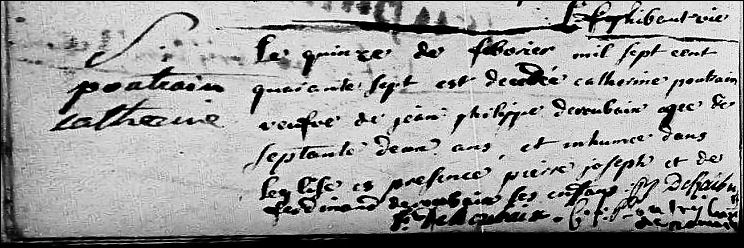 poutrain
catherine
Le quinze de febvrier mil sept cent
quarante sept est decedée catherine poutrain
veufve de jean philippe deroubaix agee de
septante deux ans et inhumee dans
leglise es presence pierre joseph et de
ferdinand deroubaix ses enfans
deroubaix